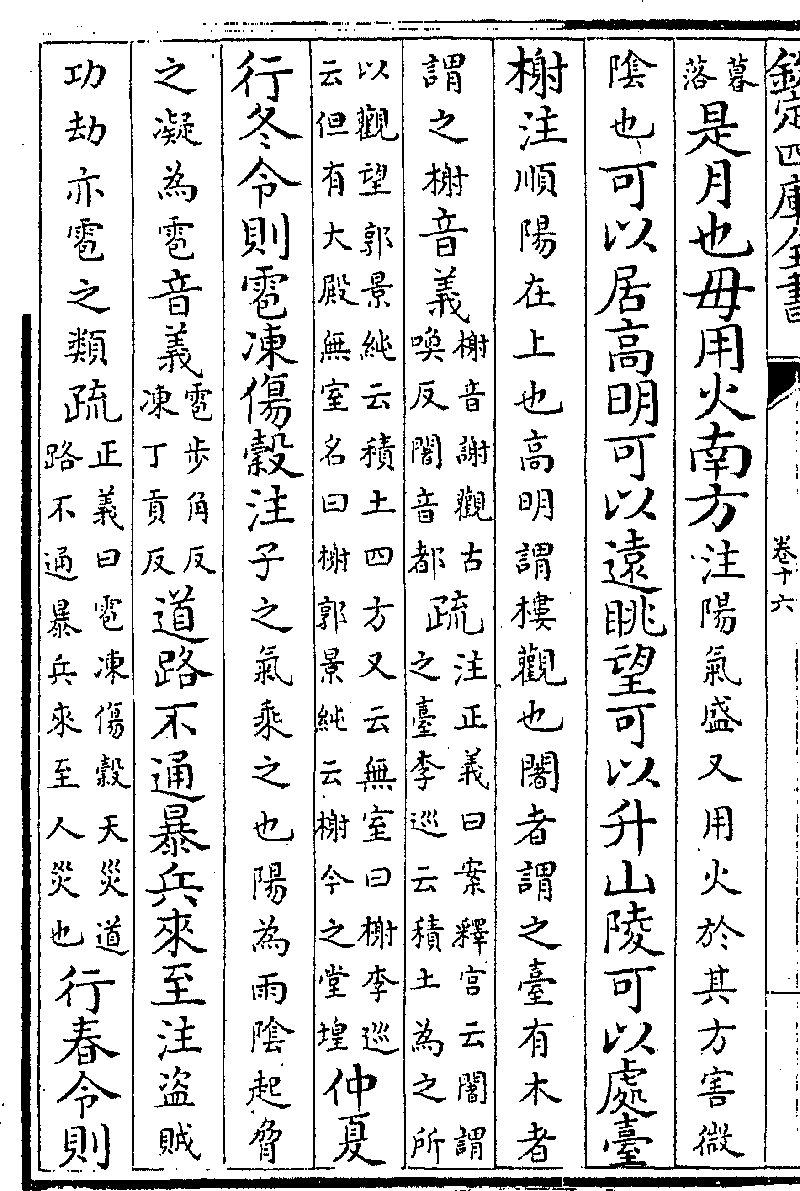 欽定四庫全書 卷十六
暮落是月也毋用火南方注陽氣盛又用火於其方害微
陰也可以居高明可以遠眺望可以升山陵可以處臺
榭注順陽在上也高明謂樓觀也闍者謂之臺有木者
謂之榭音義榭音謝觀古喚反闍音都疏注正義曰案釋宮云闍謂之臺李巡云積土為之所
以觀望郭景純云積土四方又云無室曰榭李巡云但有大殿無室名曰榭郭景純云榭今之堂堭仲夏
行冬令則雹凍傷穀注子之氣乘之也陽為雨陰起脅
之凝為雹音義雹步角反凍丁貢反道路不通暴兵來至注盜賊
功劫亦雹之類疏正義曰雹凍傷穀天災道路不通暴兵來至人災也行春令則